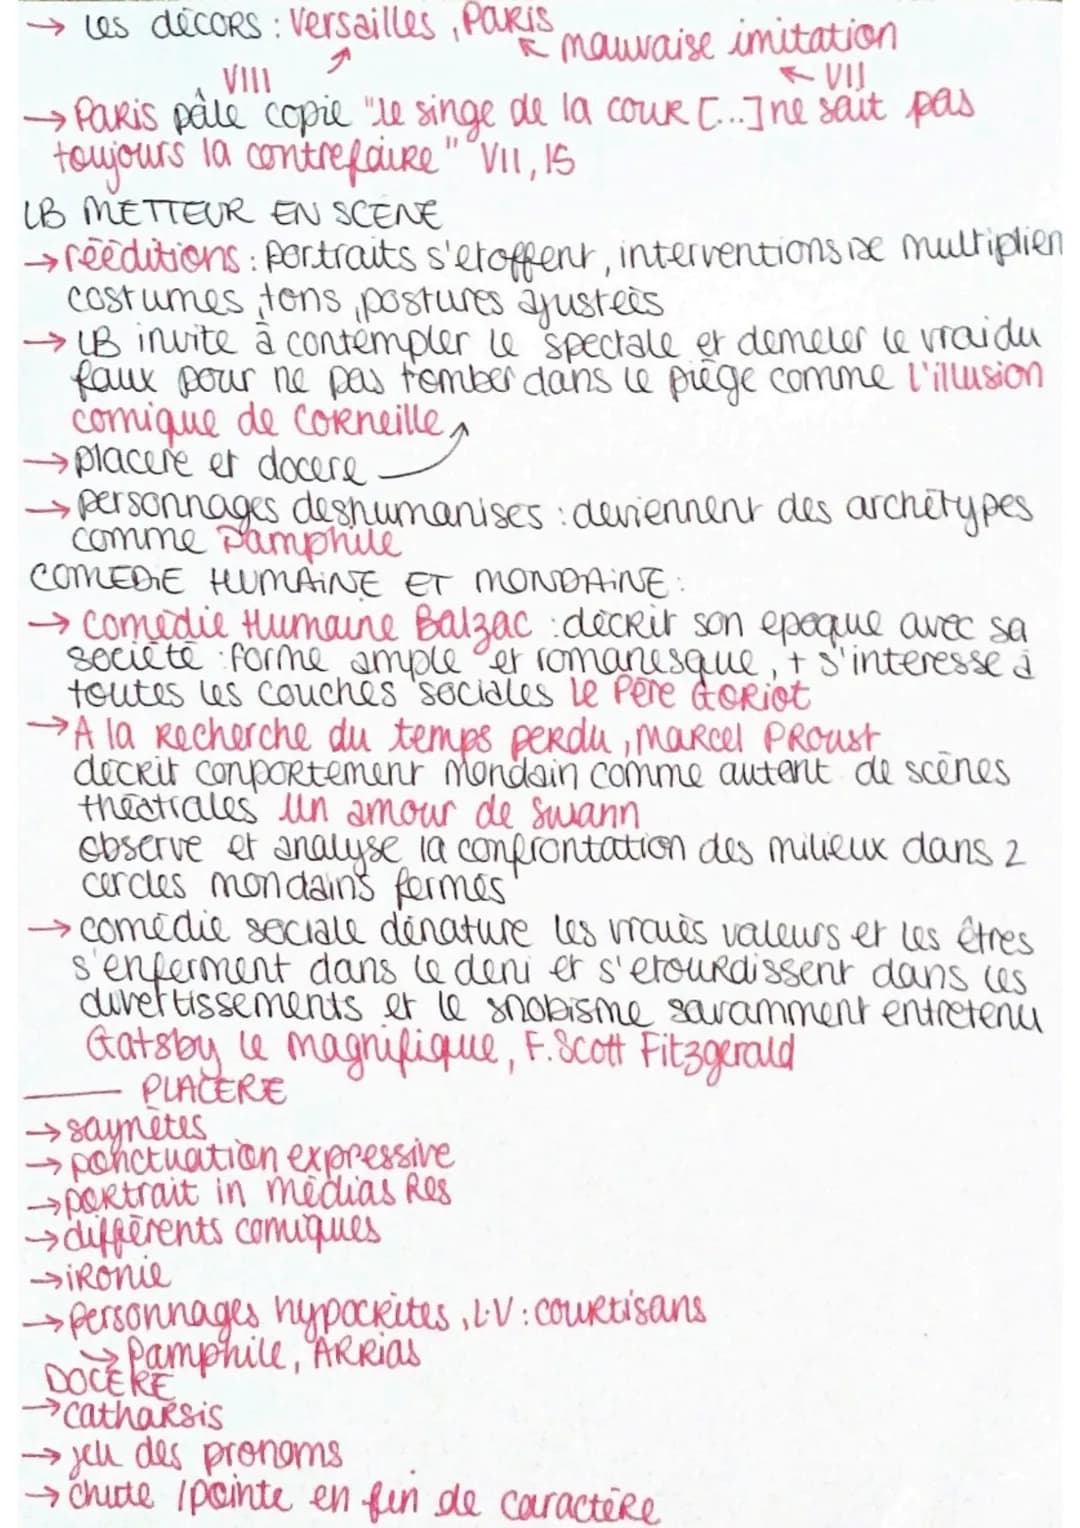 → les décors : Versailles, Paris
↖ mauvaise imitation
VIII ↗ ↖ VII
→ Paris pâle copie "le singe de la cour [...] ne sait pas
toujours la contrefaire" VII, 15
LB METTEUR EN SCENE
→ rééditions : portraits s'etoffent, interventions se multiplien
costumes, tons, postures ajustées
→ LB invite à contempler le spectale et demeler le vrai du
faux pour ne pas tomber dans le piège comme l'illusion
comique de Corneille
→ placere et docere
→ personnages deshumanises : deviennent des archétypes
comme Pamphile
COMEDIE HUMAINE ET MONDAINE :
→ comédie Humaine Balzac : décrit son epoque avec sa
société : forme ample et romanesque, + s'interesse à
toutes les couches sociales le Père Goriot
→ A la Recherche du temps perdu, Marcel Proust
décrit conportement mondain comme autent de scènes
théatrales Un amour de Swann
observe et analyse la confrontation des milieux dans 2
cercles mondains fermés
→ comédie sociale dénature les vraies valeurs et les êtres
s'enferment dans le deni et s'etourdissent dans les
divertissements et le snobisme savamment entretenu
Gatsby le magnifique, F. Scott Fitzgerald
PLACERE
→ saynètes
→ ponctuation expressive
→ portrait in médias Res
→ différents comiques
→ ironie
→ personnages hypocrites, L.V : courtisans
↳ Pamphile, Arrias
DOCERE
→ catharsis
→ jeu des pronoms
→ chute / pointe en fin de caractère